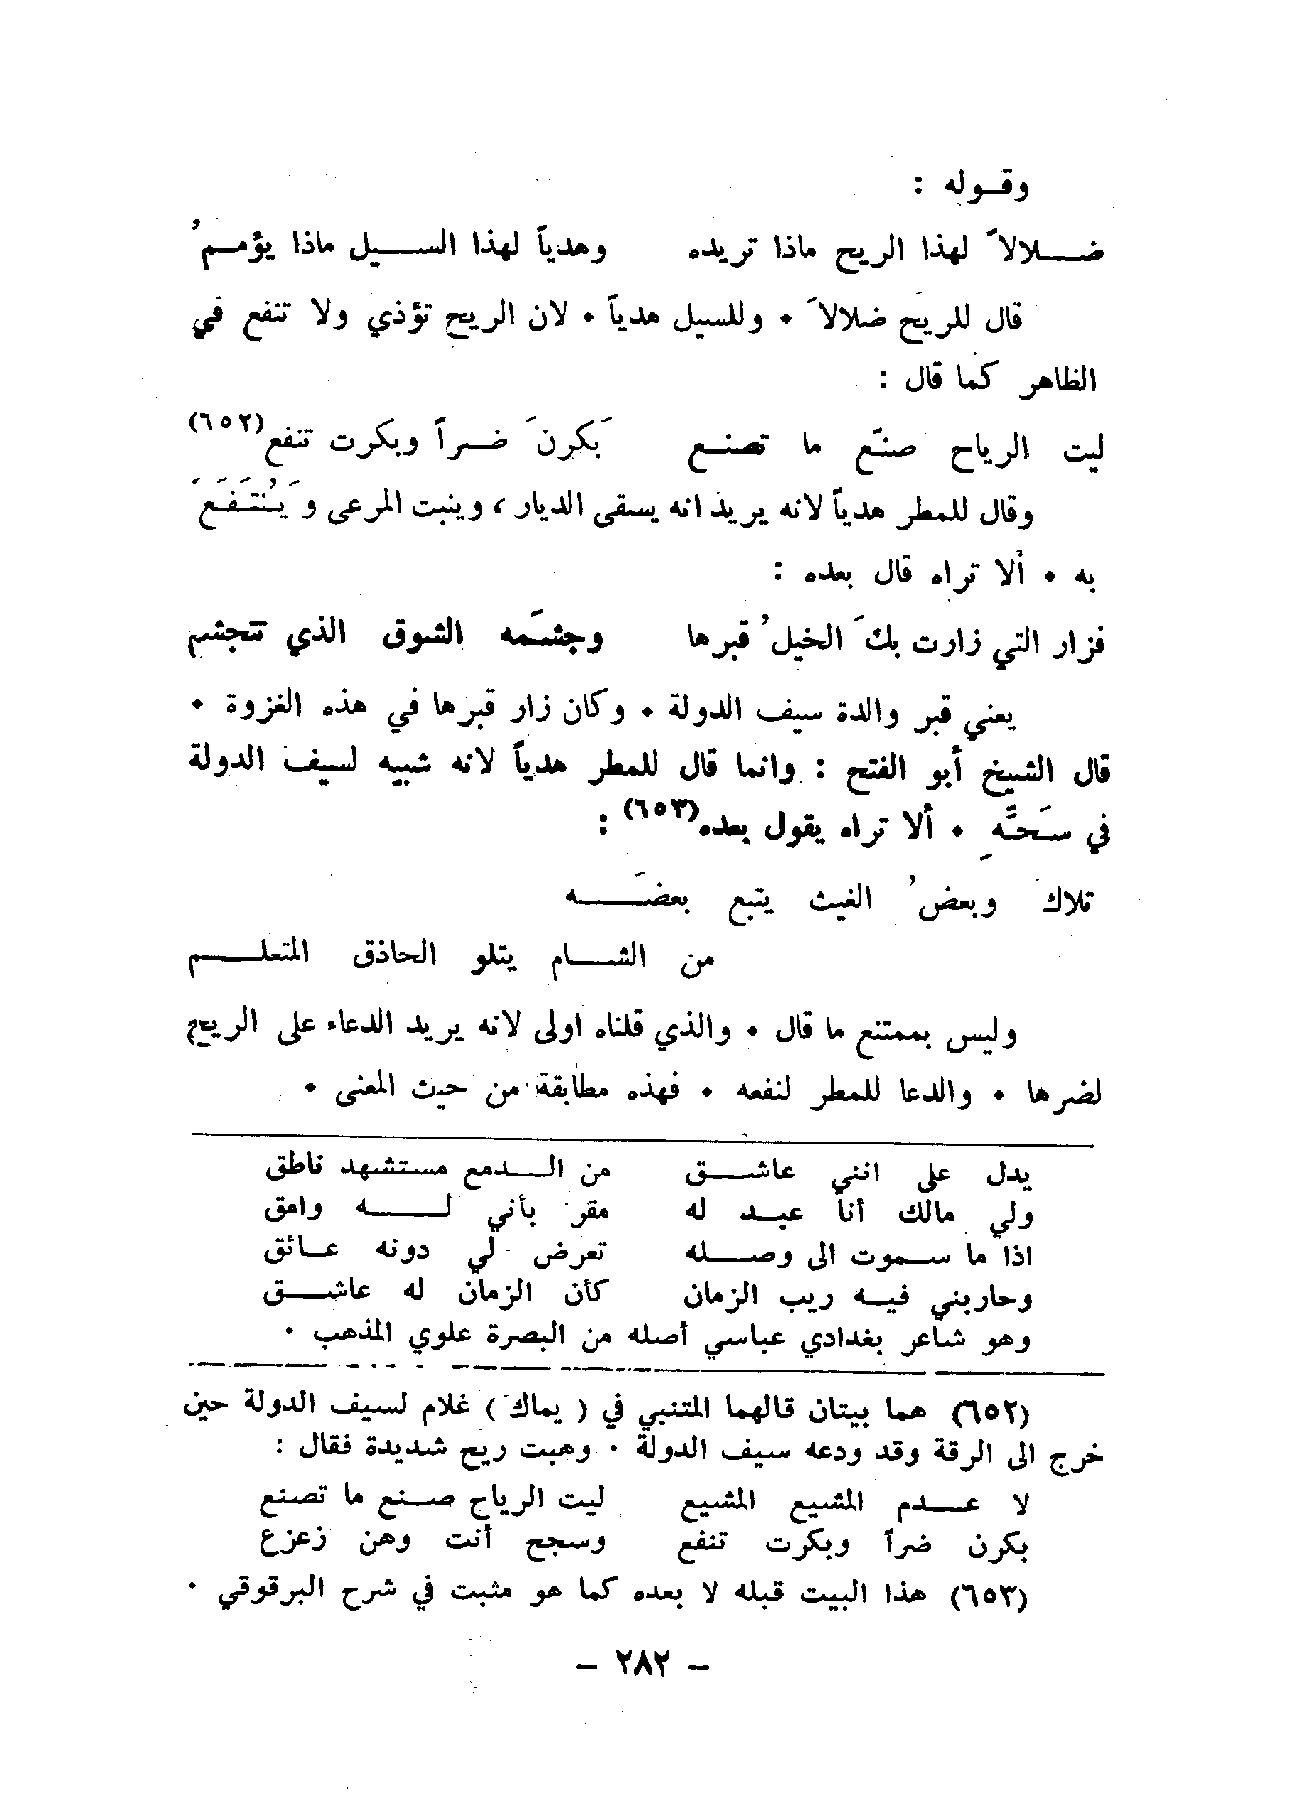 وقوله :
ضلالاً لهذا الريح ماذا تريده وهدياً لهذا السيل ماذا يؤممُ
قال للريح ضلالاً • وللسيل هدياً • لان الريح تؤذي ولا تنفع في
الظاهر كما قال :
ليت الرياح صنّع ما تصنع بَكرنَ ضراً وبكرت تنفع(٦٥٢)
وقال للمطر هدياً لانه يريد انه يسقى الديار ، وينبت المرعى و يُنتَفَعَ
به • ألا تراه قال بعده :
فزار التي زارت بكَ الخيلُ قبرها وجشّمه الشوق الذي تتجشم
يعني قبر والدة سيف الدولة • وكان زار قبرها في هذه الغزوة •
قال الشيخ أبو الفتح : وانما قال للمطر هدياً لانه شبيه لسيف الدولة
في سَحِّه • ألا تراه يقول بعده(٦٥٣) :
تلاك وبعضُ الغيث يتبع بعضَه
من الشام يتلو الحاذق المتعلم
وليس بممتنع ما قال • والذي قلناه اولى لانه يريد الدعاء على الريح
لضرها • والدعا للمطر لنفعه • فهذه مطابقة من حيث المعنى •
يدل على انني عاشق من الدمع مستشهد ناطق
ولي مالك أنا عبد له مقر بأني له وامق
اذا ما سموت الى وصله تعرض لي دونه عائق
وحاربني فيه ريب الزمان كأن الزمان له عاشق
وهو شاعر بغدادي عباسي أصله من البصرة علوي المذهب •
(٦٥٢) هما بيتان قالهما المتنبي في ( يماك ) غلام لسيف الدولة حين
خرج الى الرقة وقد ودعه سيف الدولة • وهبت ريح شديدة فقال :
لا عدم المشيع المشيع ليت الرياح صنع ما تصنع
بكرن ضراً وبكرت تنفع وسجح أنت وهن زعزع
(٦٥٣) هذا البيت قبله لا بعده كما هو مثبت في شرح البرقوقي •
– ٢٨٢ –